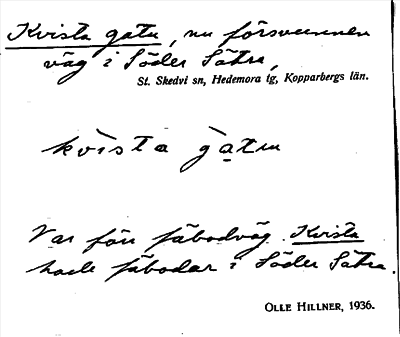 Kvista gatu, nu försvunnen
väg i Söder Sätra,
St. Skedvi sn, Hedemora tg, Kopparbergs län.
kvista gatu
Var förr fäbodväg. Kvista
hade fäbodar i Söder Sätra.
OLLE HILLNER, 1936.